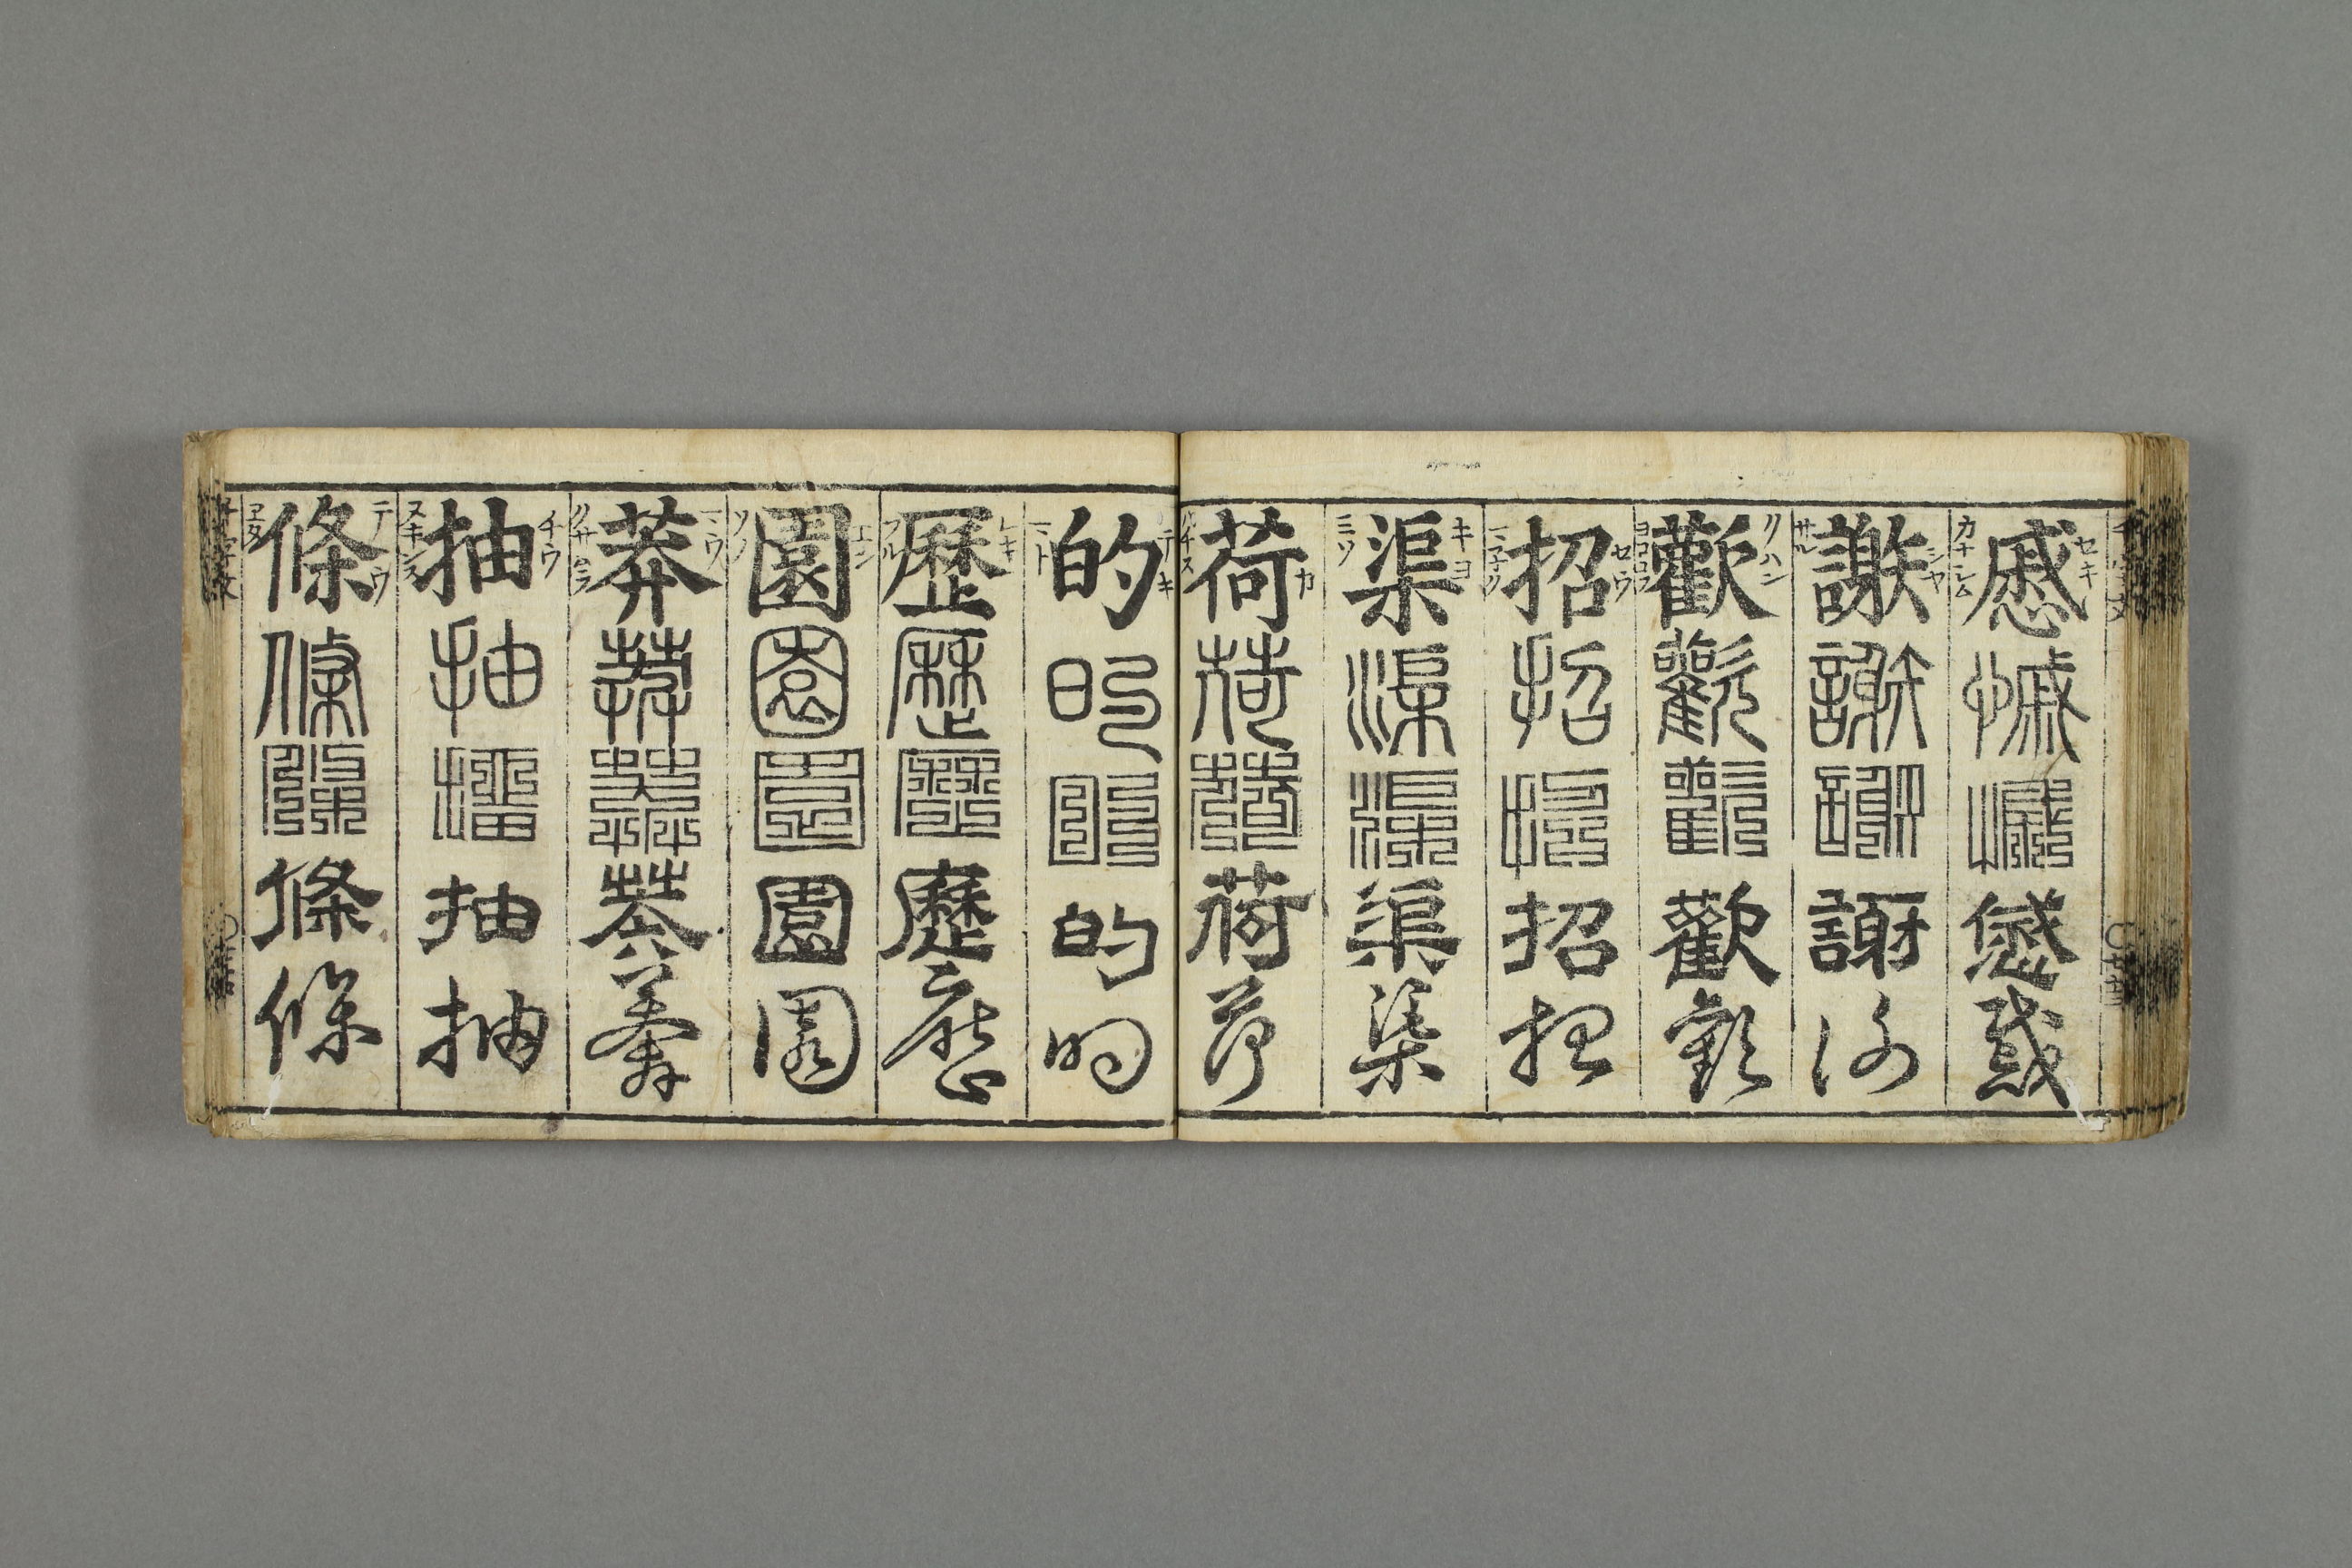 慼慼慼慼慼
セキ
カナシム
謝謝謝謝謝
シヤ
サル
歡歡歡歡歡
クハン
ヨロコフ
招招招招招
セウ
マネク
渠渠渠渠渠
キヨ
ミソ
荷荷荷荷荷
カ
ハチス
的的的的的
テキ
マト
歷歷歷歷歷
レキ
フル
園園園園園
エン
ソノ
莽莽莽莽莽
マウ
クサムラ
抽抽抽抽抽
チウ
ヌキンス
條條條條條
テウ
ヱタ
千字文